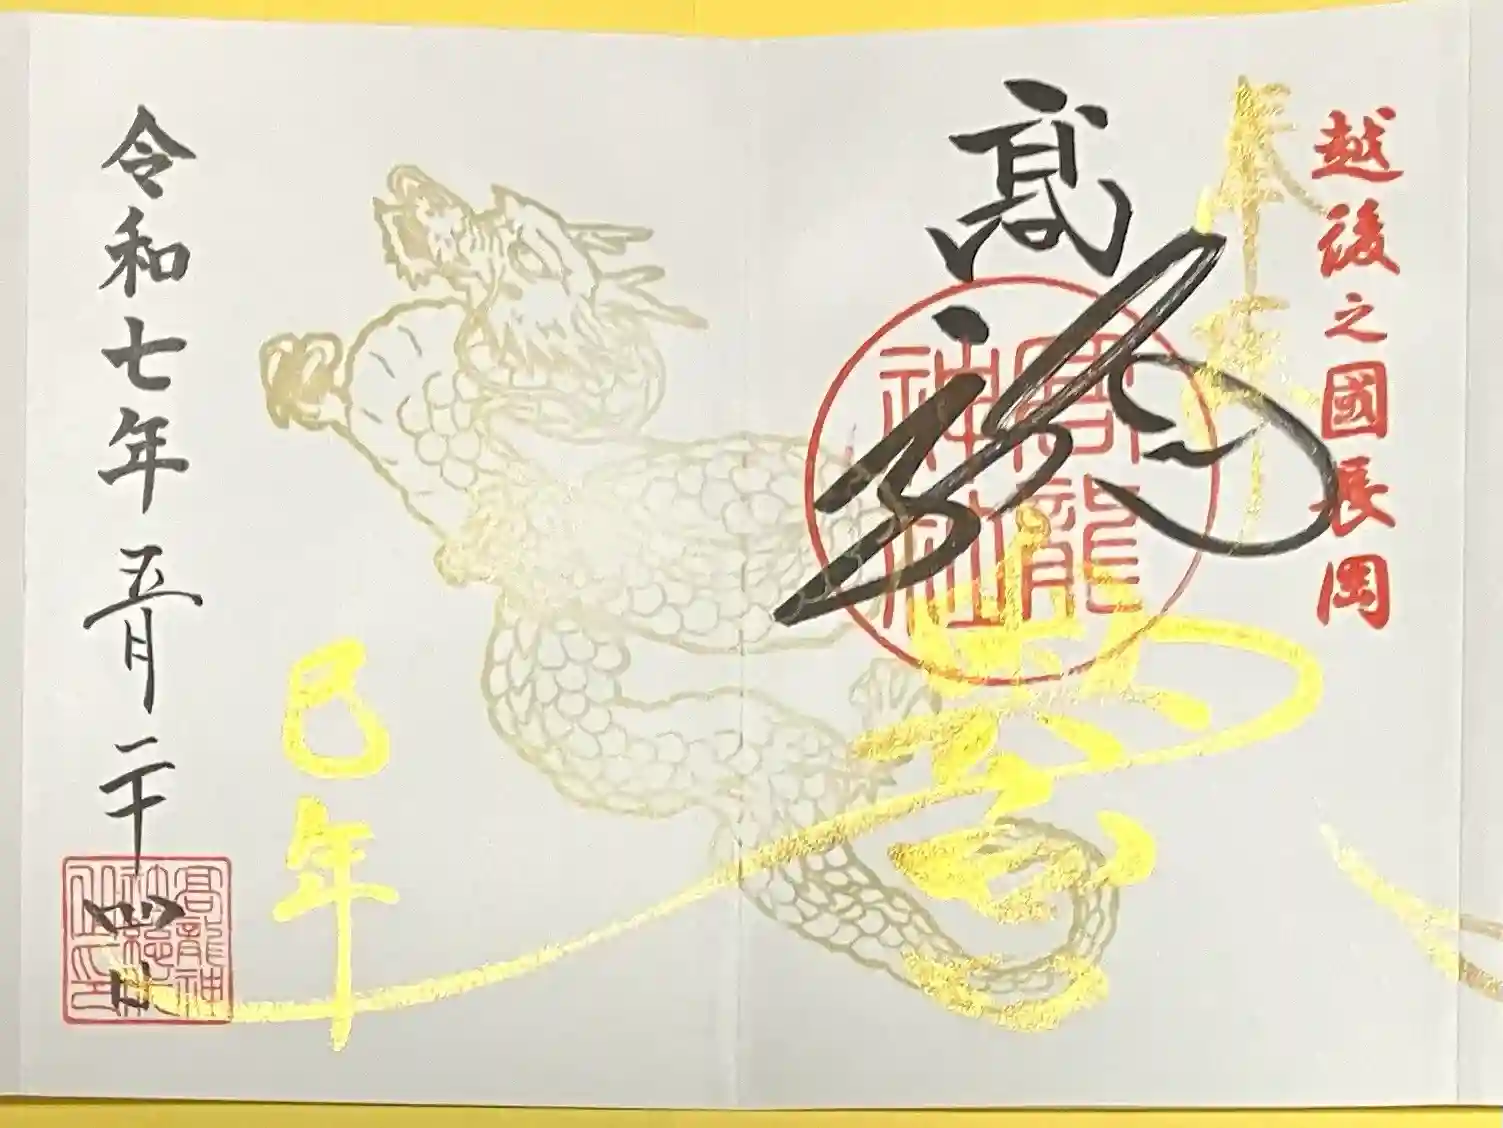 越後之國長岡
奉拝
髙龍
髙龍神社
巳年
令和七年五月二十四日